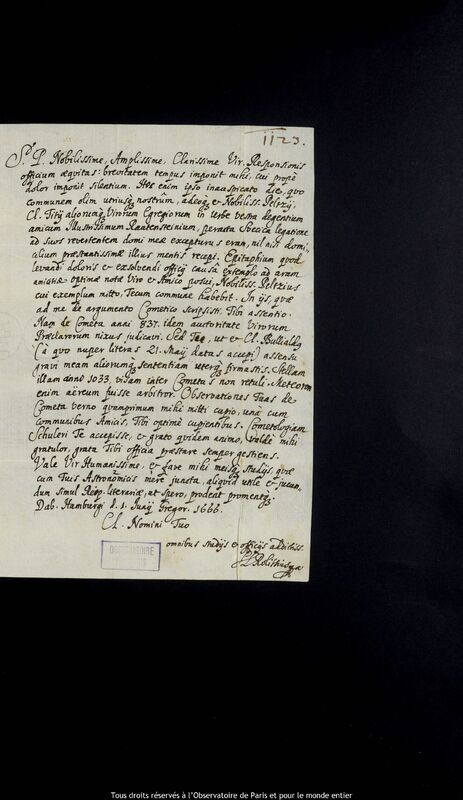 1123.
S. P. Nobilissime, Amplissime, Clarissime Vir. Responsionis
officium æquitas: brevitatem tempus imponit mihi, cui propè
dolor imponit silentium. Hoc enim ipso inauspicato die, quo
communem olim utriusq; nostrûm, adeoq; & Nobiliss. Pelzij,
Cl. Titij aliorumq; Virorum Egregiorum in Urbe vestra degentium
amicum Illustrissimum Plantensteinium, peracta Svecica legatione
ad suos revertentem domi meæ excepturus eram, nil nisi domi-
cilium præstantissimæ illius mentis recepi. Epitaphium quod
levandi doloris & exsolvendi officij causâ extemplo ad aram
amicitiæ optimæ notæ Viro & Amico posui, Nobiliss. Peltzius
cui exemplum mitto, Tecum commune habebit. In ijs, quæ
ad me de argumento Cometico scripsisti, Tibi assentio.
Nam de Cometa anni 837. idem autoritate Virorum
Præclarorum nixus judicavi. Sed Tae, ut & Cl. Bullialdi,
(à quo nuper literas 21. Maij datas accepi) assensu
gravi meam aliorumq; sententiam uterq; firmastis. Stellam
illam anno 1033. visam inter Cometas non retuli. Meteoron
enim aëreum fuisse arbitror. Observationes Tuas de
Cometa verno quamprimum mihi mitti cupio, unà cum
communibus Amicis, Tibi optimè cupientibus. Cometologiam
Schuleri Te accepisse, & grato quidem animo, valdè mihi
gratulor, grata Tibi officia præstare semper gestiens.
Vale Vir Humanissime, & fave mihi meisq; studijs, quæ
cum Tuis Astronomicis mere juncta, aliquid utile & jucun-
dum simul Reip. literariæ, ut spero, prodent promentq;.
Dab. Hamburgi d. 1. Junij Gregor. 1666.
Cl. Nomini Tuo
omnibus studijs & officijs addictiss.
OBSERVATOIRE
Tous droits réservés à l'Observatoire de Paris et pour le monde entier